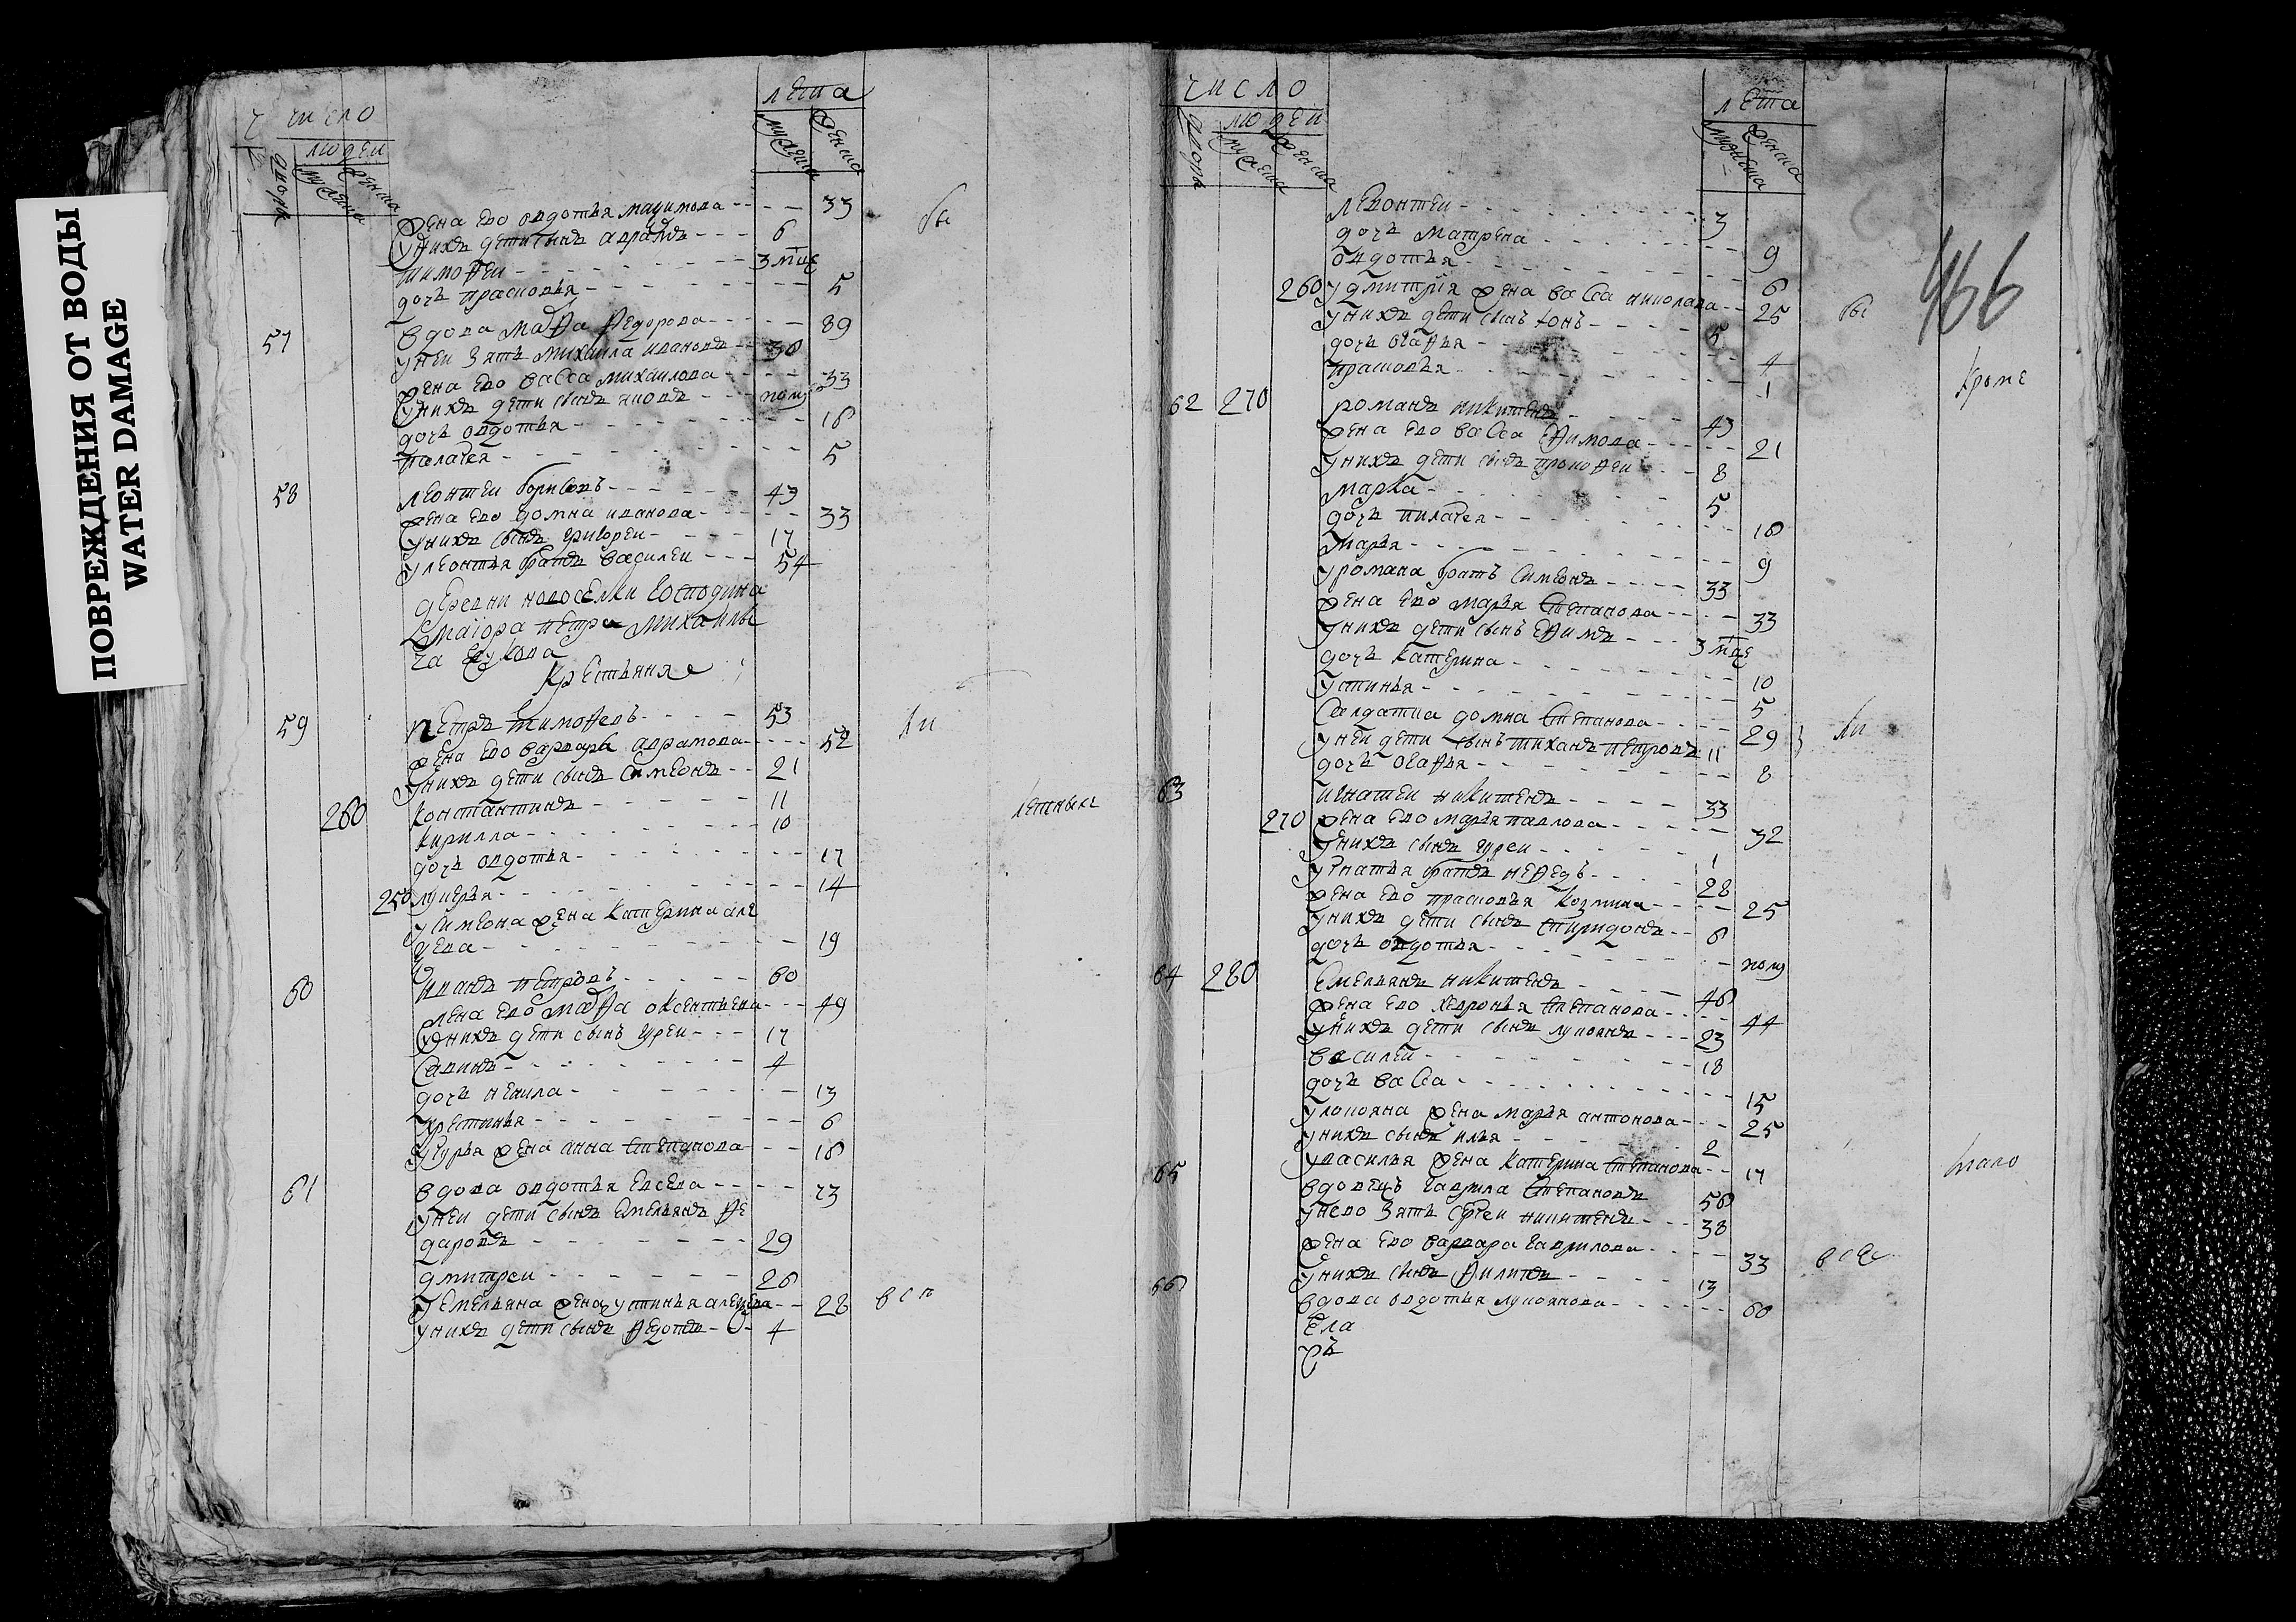 ПОВРЕЖДЕНИЯ ОТ ВОДЫ
WATER DAMAGE
число
людеи
двора мужеска женска
лета
мужеска женска
жена ево овдотья маѯимова 33 бы
уних дети сынъ аврамъ 6
тимофеи 3 мце
дочь прасковья 5
57 вдова марфа федорова 89
унеи зять михаила ивановъ 38
жена ево васса михаилова 33
уних дети сынъ яковъ полу
дочь овдотья 18
палагея 5
58 леонтеи борисовъ 43
жена ево домна иванова 33
уних сынъ григореи 17
у леонтья братъ василеи 54
деревни новоселки господина
маіора петра михаилы
ча жукова
крестьяня
59 петръ тимофеевъ 53 ли
жена ево варвара аврамова 52
уних дети сынъ симеонъ 21
260 константинъ 11 летныхъ
кирилла 10
дочь овдотья 17
250 лукерья 14
у симеона жена катерина але
ѯева 19
60 иванъ петровъ 60
жена ево марфа оксентьева 49
уних дети сынъ гуреи 17
савинъ 4
дочь ненила 13
крестинья 6
у гурья жена анна степанова 18
61 вдова овдотья евсева 73
унеи дети сынъ емельянъ фе
доровъ 29
дмитреи 26
у емельяна жена устинья алеѯева 28 всп
уних дети сынъ федотъ 4
число
людеи
двора мужеска женска
лета
мужеска женска
466
левонтеи 3
дочь матрена 9
овдотья 6
260 у дмитрия жена васса николаева 25 бы
уних дети сынъ 5
дочь огафья 4
прасковья 1 кроме
62 270 романъ никитенъ 43
жена ево васса ефимова 21
уних дети сынъ прокофеи 8
марка 5
дочь пилагея 18
марья 9
у романа братъ симеонъ 33
жена ево марья степанова 33
уних дети сынъ ефимъ 3 мце
дочь катерина 10
устинья 5
салдатка домна степанова 29 ли
унеи дети сынъ тихонъ петровъ 11
дочь огафья 8
63 игнатеи никитенъ 33
270 жена ево марья павлова 32
уних сынъ гуреи 1
у игнатья братъ нефедъ 28
жена ево прасковья козмина 25
уних дети сынъ спиридонъ 6
дочь овдотья полу
64 280 емельянъ никитенъ 46
жена ево хавронья степанова 44
уних дети сынъ лукоянъ 23
василеи 18
дочь васса 15
у лукояна жена марья антонова 25
уних сынъ илья 2
у василья жена катерина степанова 17 того
65 вдовецъ гаврила степановъ 58
унево зять сергеи никитенъ 38
жена ево варвара гаврилова 33 все
уних сынъ филипъ 13
66 вдова овдотья лукоянова 60
Ела